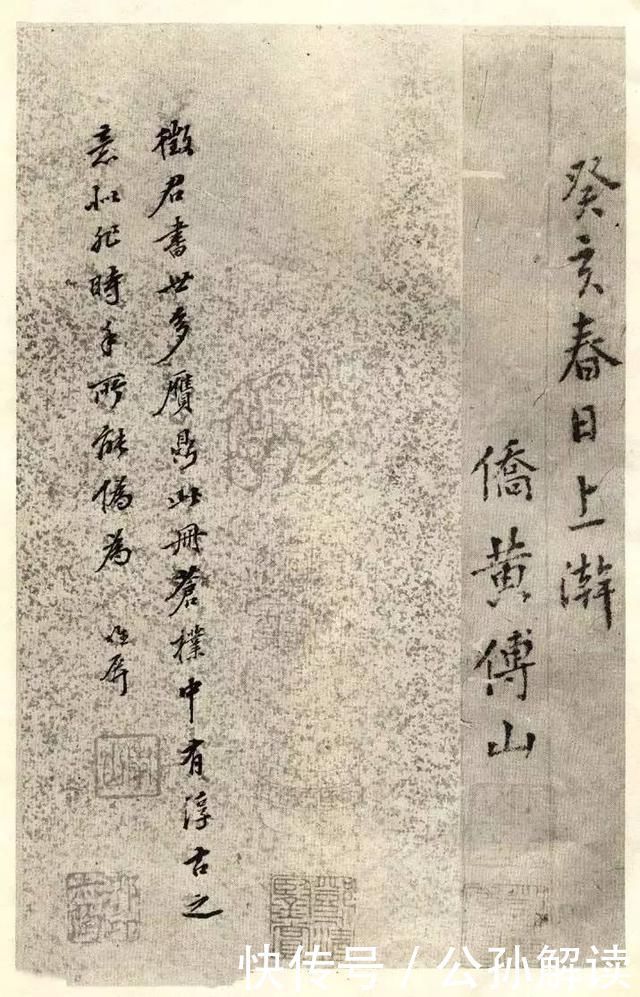 癸亥春日上澣
僑黄傅山
徵君書世多贋鼎此册蒼樸中有淳古之
意似非時手所能僞為
快传号 / 公孙解读